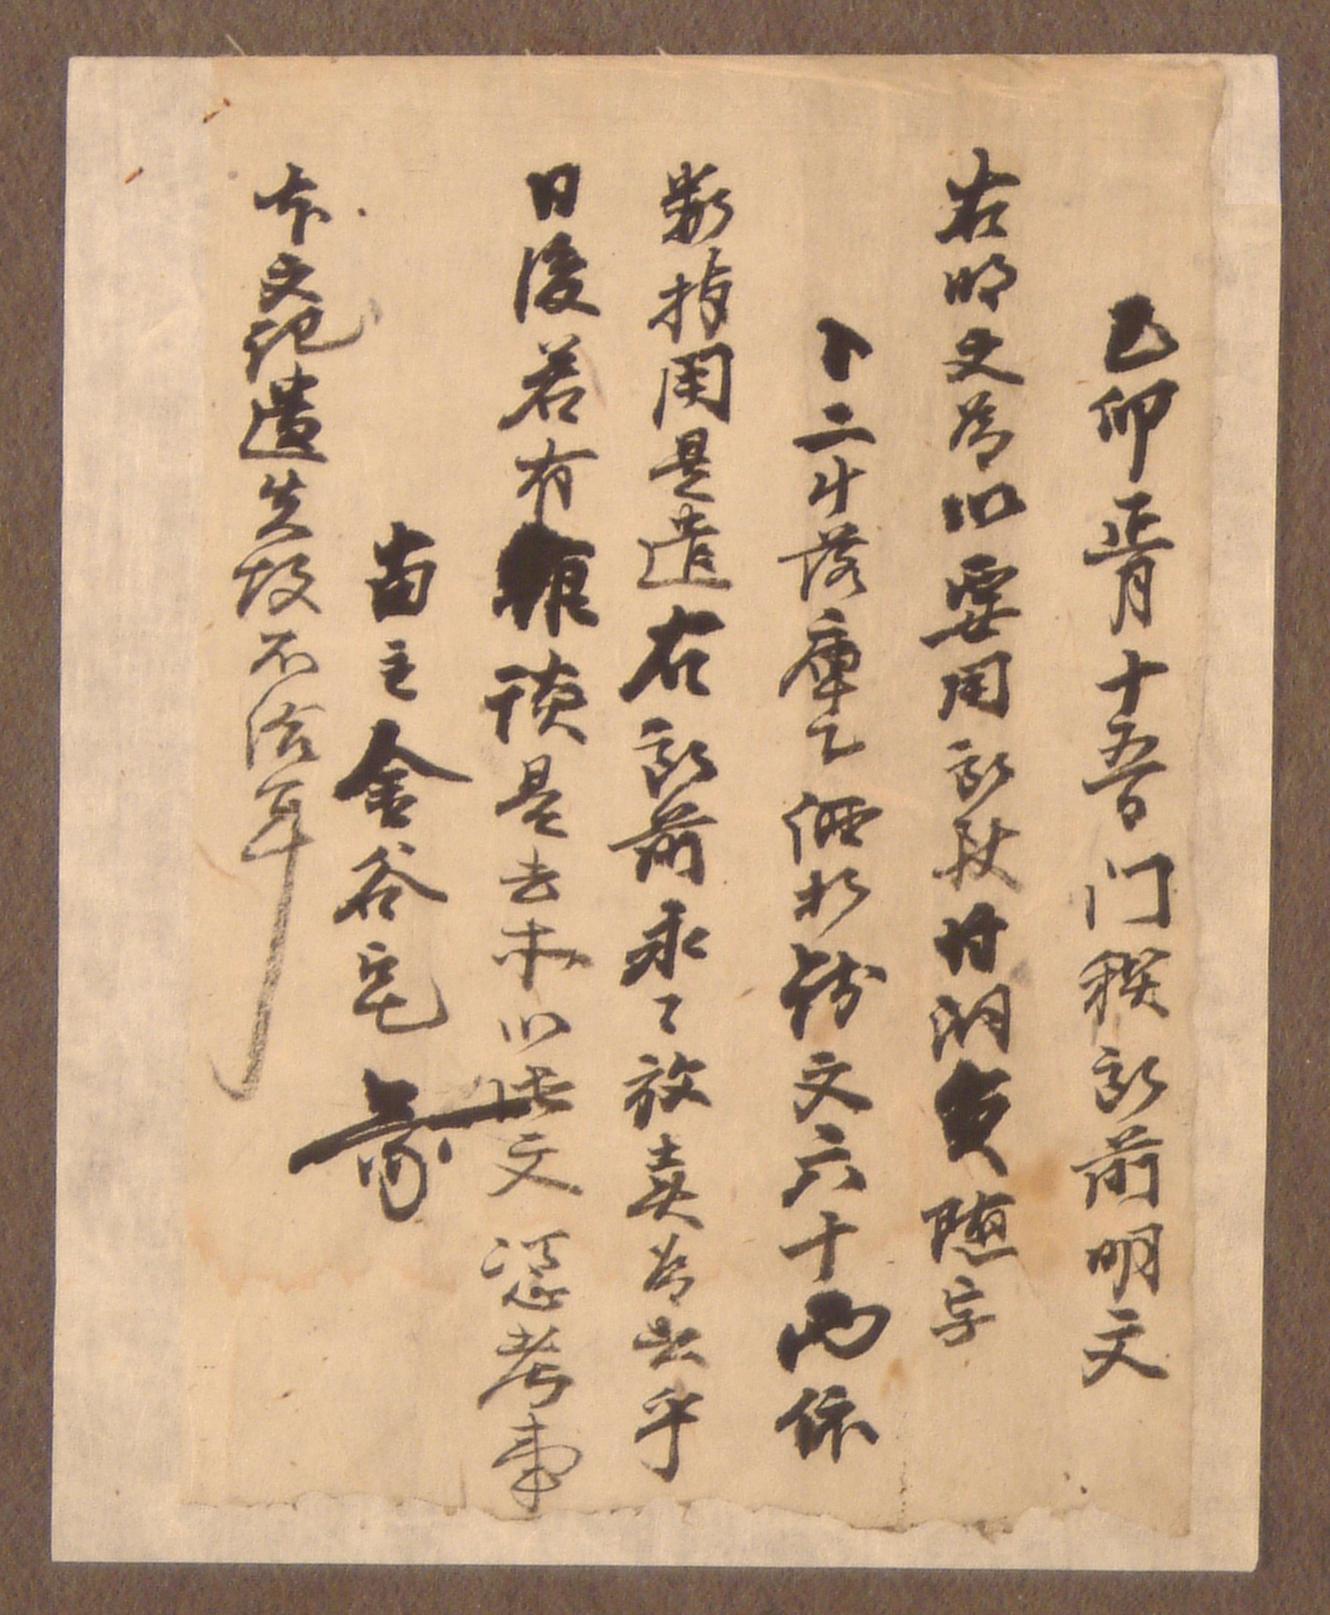 己卯正月十五日門稧所前明文
右明文爲以要用所致付洞員隱字
卜二斗落庫乙価折錢文六十兩依
數捧用是遣右所前永〻放賣爲去乎
日後若有雜談是去未以此文憑考事
畓主金谷宅
本文記遺失故不給耳